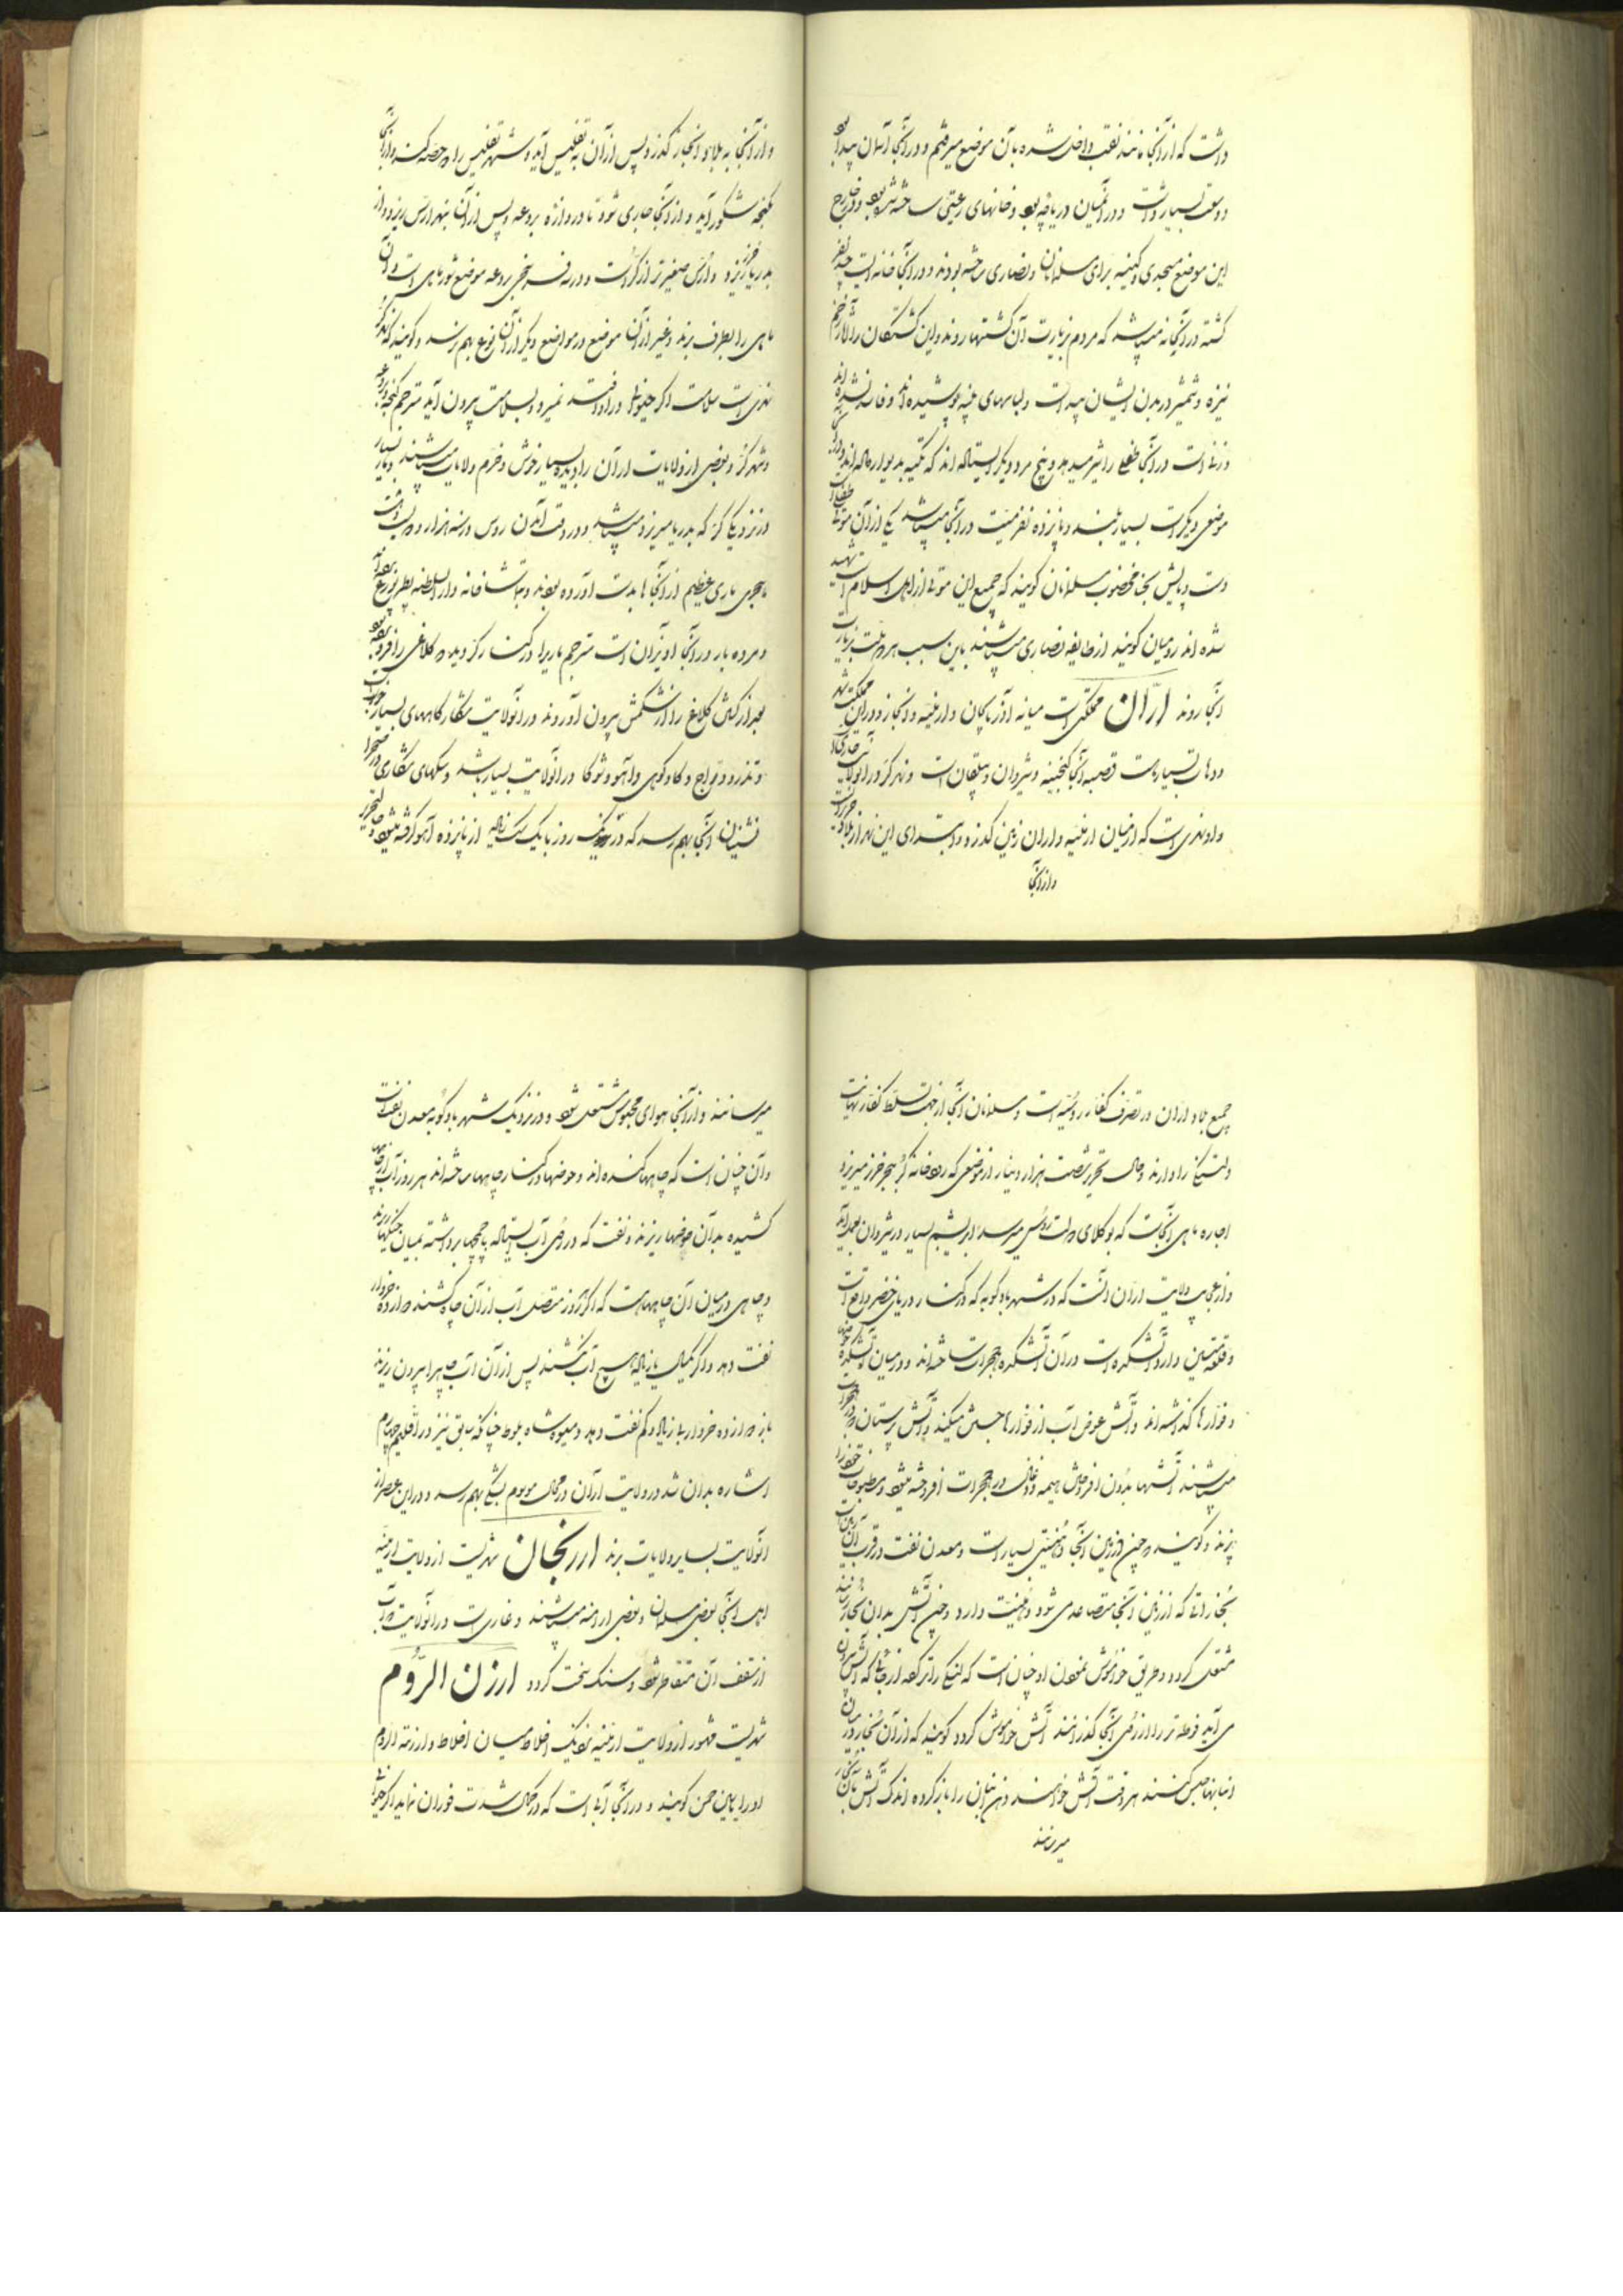 داشت که از آنجا مانند نقب داخل شده بآن موضع میرفتیم و در آنجا آسمان پیدا بود
و وسعت بسیار داشت و در آنمیان دریاچه بود و خانهای رعیتی ساخته شده بود و در خارج
این موضع مسجدی و کنیسه برای مسلمانان و نصاری ساخته بودند و در آنجا خانه ایست چند نفر
کشته در آنجانه میباشد که مردم بزیارت آن کشتها روند و این کشتگان را آثار زخم
نیزه و شمشیر در بدن ایشان پیداست و لباسهای پنبه پوشیده اند و فاسد نشده اند
و زنی است در آنجا طفلی را شیر میدهد و پنج مرد دیگر ایستاده اند که تکیه بدیوار داده اند
موضعی دیگر است بسیار بلند و پانزده نفر میت در آنجا میباشد یکی از آن موتی طفل است
دست و پایش بحنا مخضوب مسلمانان گویند که جمیع این موتی از اهل اسلام است شهید
شده اند رومیان گویند از طایفه نصاری میباشند باین سبب هر دو ملت بزیارت
آنجا روند ارّان مملکتی است میانه آذربایجان و ارمنیه و ابخاز و در این مملکت شهر
و دهات بسیار است قصبه آنجا گنجه و شروان و بیلقان است و نهر کر در آنولایت جاری
و او نهری است که از میان ارمنیه و اران زمین گذرد و ابتدای این نهر از بلاد خزر است
و از آنجا
و از آنجا به بلاد ابخاز گذرد و پس از آن به تفلیس آید و شهر تفلیس را دو حصه کند و از آنجا
بگنجه شمکور آید و از آنجا جاری شود تا دروازه بردعه و پس از آن بنهر ارس ریزد و از
بدریا خزر ریزد و ارس صغیرتر از کر است و در سه فرسخی بردعه موضع شورماهی است و آن
ماهی را بطرف برند و غیر از آن موضع در مواضع دیگر از آن نوع بهم نرسد و گویند که نهر کر
نهری است سلامت اکثر حیوانی در او افتد نمیرد و بسلامت بیرون آید مترجم گنجه و بردعه
و شهر کر و بعضی از ولایات اران را دیده بسیار خوش و خرم ولایات میباشند و مار بسیار
در نزدیکی کر که بدریا میریزد میباشد و در وقت آمدن روس در سنه هزار و دویست و هشت
هجری ماری عظیم از آنجا بدست آورده بودند و بتماشاخانه دارالسلطنه پطربورغ
و مرده مار در آنجا آویزان است مترجم ماریرا در کنار کر دیده که کلاغی را فرو برده بود
بعد از کشتن کلاغ را از شکمش بیرون آوردند در آنولایت شکارگاههای بسیار خوب است
و تذرو و دراج و گاو کوهی و آهو و شوکا در آنولایت بسیار باشد و سگهای شکاری در صحرا
نشینان آنجا بهم رسد که در یک روز با یک سگ زیاده از پانزده آهو گرفته میشود و حالت تحریر
جمیع بلاد اران در تصرف کفار روسیه است و مسلمانان آنجا از جهت تسلط کفار نهایت
دلتنگی را دارند و حال تحریر شصت هزار دینار از موضعی که رودخانه کر ببحر خزر میریزد
اجاره ماهی آنجاست که بوکلای دولت روس میرسد ابریشم بسیار در شروان بعمل آید
و از عجایب ولایت اران آنست که در شهر بادکوبه که در کنار دریای خضر واقع است
و قلعه متین دارد آتشکده است در آن آتشکده حجرات ساخته اند و در میان آتشکده حوضها
و فوارها گذاشته اند و آتش عوض آب از فوارها جستن میکند و آتش پرستان در حجرات
میباشند آتشها بدون افروختن هیمه و ذغال در حجرات افروخته میشود و مطبوخات خود را
پزند و گویند که چون زمین آنجا دهنیتی بسیار است و معدن نفت در قرب آن زمین است
بخاراتی که از زمین آنجا متصاعد می شود دهنیت دارد و چون آتش بدان بخار رسانند
مشتعل گردد و طریق خواموش نمودن او چنان است که لنگی را تر کرده از جائی که آتش بیرون
می آید فوطه تر را از روی آنجا گذرانند آتش خواموش گردد گویند که از آن بخار در میان
انبانها حبس کنند هر وقت آتش خواهند دهن انبان را باز کرده اندک آتش بآن بخار
میرسانند
میرسانند و از آنجا هوای محبوس مشتعل شود و در نزدیک شهر بادکوبه معدن نفت است
و آن چنان است که چاهها کنده اند و حوضها در کنار چاهها ساخته اند هر روز آب از چاهها
کشیده بدان حوضها ریزند و نفت که در روی آب ایستاده با چمچها برداشته بمیان خیکها ریزند
و چاهی در میان آن چاههاست که اگر روز متصل آب از آن چاه کشند دوازده خروار
نفت دهد و اگر یکسال یا زیاده هیچ آب نکشند پس از آن آب چاهرا بیرون ریزند
باز دوازده خروار بی زیاد و کم نفت دهد و میوه شاه بلوط چنانکه سابق نیز در اقلیم چهارم
اشاره بدان شد در ولایت اران در محال موسوم بشکی بهم رسد و در این عصر از
آنولایت بسایر ولایات برند ارزنجان شهریست از ولایت ارمنیه
اهل آنجا بعضی مسلمان و بعضی ارامنه میباشند و غاری است در آنولایت که آب
از سقف آن متقاطر شود و سنگ سخت گردد ارزن الرّوم
شهریست مشهور از ولایت ارمنیه نزدیک اخلاط میان اخلاط و ارزنة الروم
او را یاسین حسن گویند و در آنجا آبی است که در کمال شدت فوران نماید اگر حیوانی